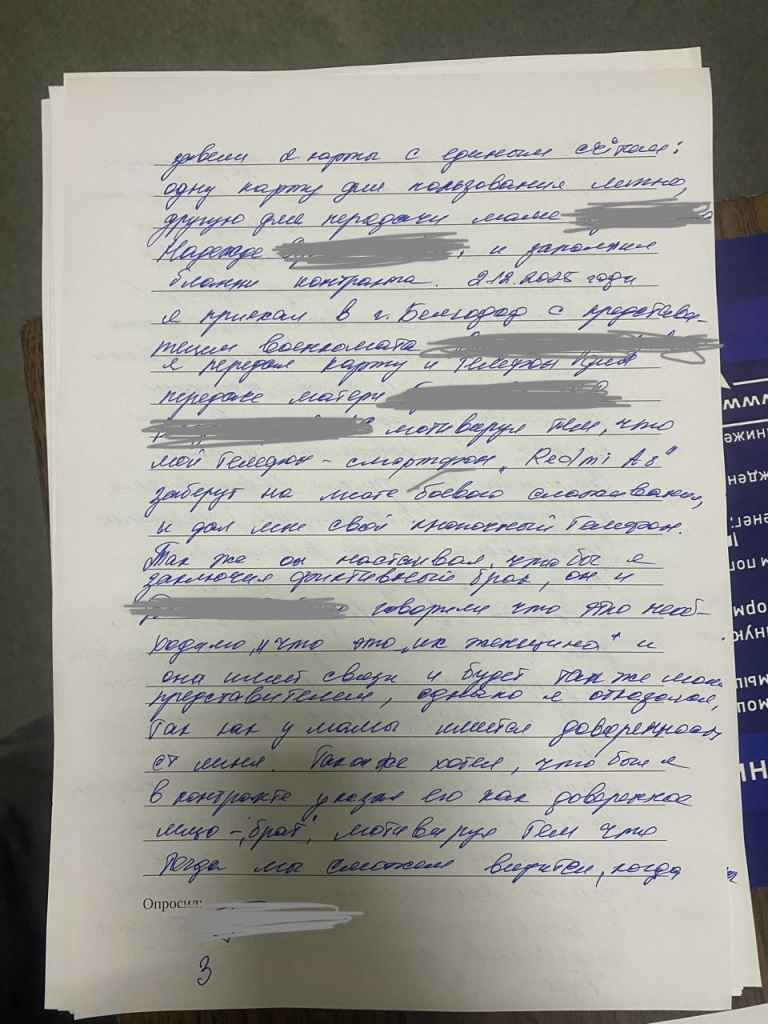 завели 2 карты с единым счётом:
одну карту для пользования лично,
другую для передачи маме
Надежде и заполнил
бланки контракта. 2.12.2025 года
я приехал в г. Белгород с представи-
телем военкомата
я передал карту и телефон для
передаче матери
мотивируя тем, что
мой телефон - смартфон „Redmi A3"
заберут на месте боевого слаживания,
и дал мне свой кнопочный телефон.
Так же он настаивал, чтобы я
заключил фиктивный брак, он и
говорили что это необ-
ходимо, и что это „их женщина" и
она имеет связи и будет так же моим
представителем, однако я отказался,
так как у мамы имеется доверенность
от меня. Так же хотел, чтобы я
в контракте указал его как доверенное
лицо - „брат", мотивируя тем что
тогда мы сможем видится, когда
Опросил:
3
www
ниже
жден
енег.
м пог
орм
ную
мощ
НИ